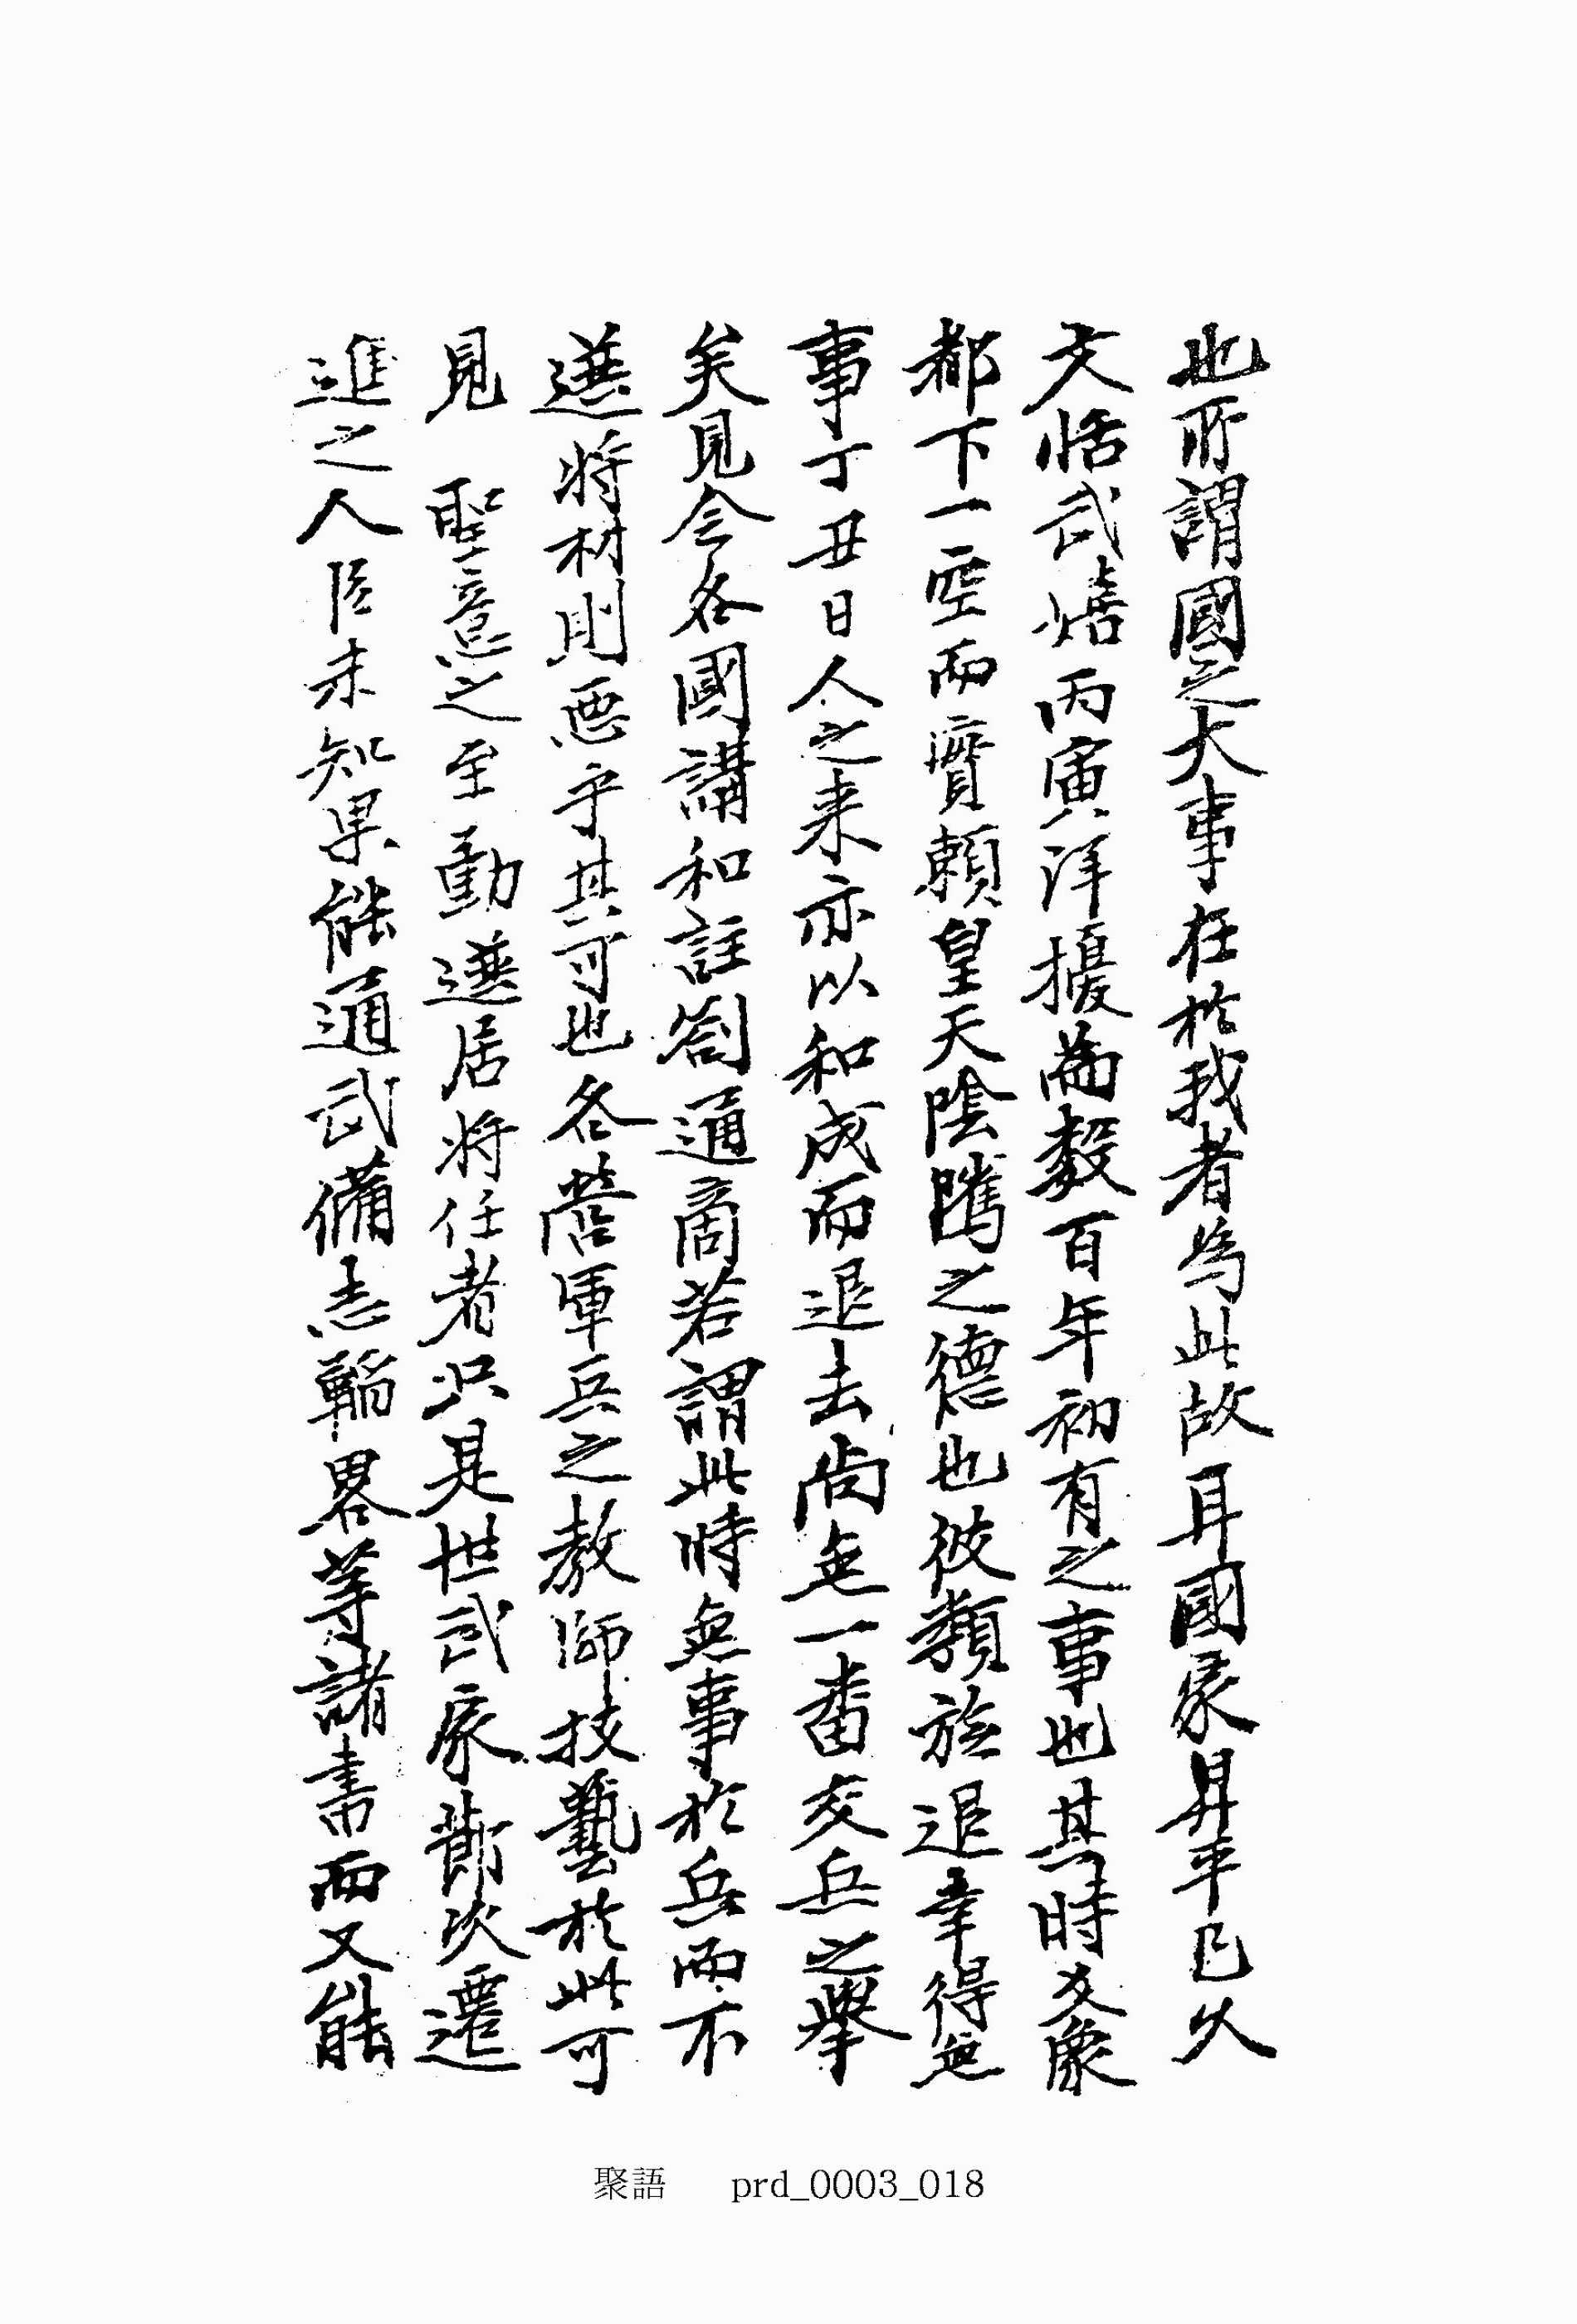 也所謂國之大事在於我者爲此故耳國家昇平已久
文恬武嬉丙寅洋擾爲數百年初有之事也其時爻象
都下一空而實賴皇天陰騭之德也彼類旋退幸得無
事丁丑日人之来亦以和成而退去尚無一番交兵之擧
矣見今各國講和註劄通商若謂此時無事於兵而不
選將材則惡乎其可也各營軍兵之教師技藝於此可
見 聖意之至勤選居將任者只是世武家節次遷
進之人臣未知果能通武備志韜畧等諸書而又能
聚語 prd_0003_018